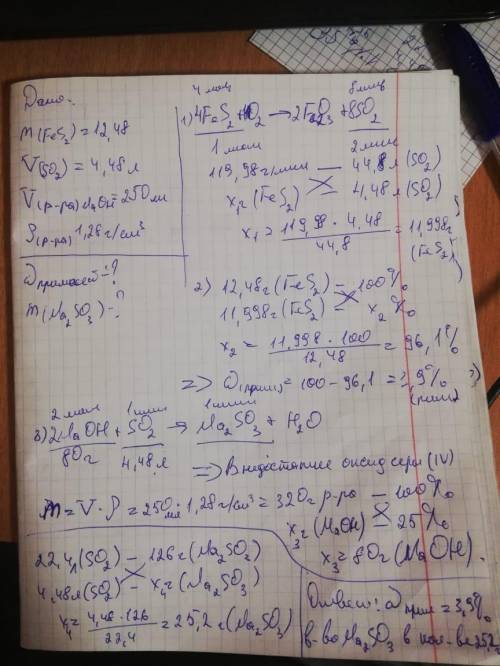 Дано:
m(FeS2) = 12,48
V(SO2) = 4,48 л
V(р-ра) NaOH = 250 мл
ρ(р-ра) 1,28 г/см³
ω примесей - ?
m(Na2SO3) - ?
4 моль 8 моль
1) 4FeS2 + O2 → 2Fe2O3 + 8SO2
1 моль 2 моль
119,98 г/моль — 44,8 л (SO2)
x1 г (FeS2) — 4,48 л (SO2)
x1 = 119,98 · 4,48 / 44,8 = 11,998 г (FeS2)
2) 12,48 г (FeS2) — 100%
11,998 г (FeS2) — x2 %
x2 = 11,998 · 100 / 12,48 = 96,1%
=> ω(прим) = 100 - 96,1 = 3,9%
2 моль 1 моль 1 моль
3) 2NaOH + SO2 → Na2SO3 + H2O
80 г 4,48 л
=> В недостатке оксид серы (IV)
m = V · ρ = 250 мл · 1,28 г/см³ = 320 г р-ра — 100%
x3 г (NaOH) — 25%
x3 = 80 г (NaOH).
22,4 л (SO2) — 126 г (Na2SO3)
4,48 л (SO2) — x4 г (Na2SO3)
x4 = 4,48 · 126 / 22,4 = 25,2 г (Na2SO3)
Ответ: ω прим = 3,9%
в-во Na2SO3 в кол-ве 25,2